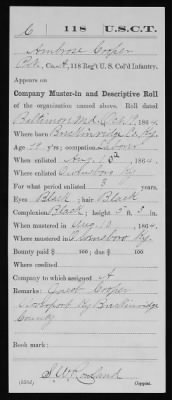 C | 118 | U.S.C.T.
Ambrose Cooper
Pvt., Co. A, 118 Reg't U. S. Col'd Infantry.
Appears on
Company Muster-in and Descriptive Roll
of the organization named above. Roll dated
Baltimore Md. Oct. 19, 1864.
Where born Breckinridge Co. Ky.
Age 19 y'rs; occupation Labor
When enlisted Aug. 10, 1864.
Where enlisted Owensboro Ky
For what period enlisted 3 years.
Eyes Black; hair Black
Complexion Black; height 5 ft. in.
When mustered in Aug. 10, 1864.
Where mustered in Owensboro Ky.
Bounty paid $ 100; due $ 100
Where credited
Company to which assigned A
Remarks: Cooper
Ky Breckinridge
County
Book mark:
S. W. Rowland
Copyist.